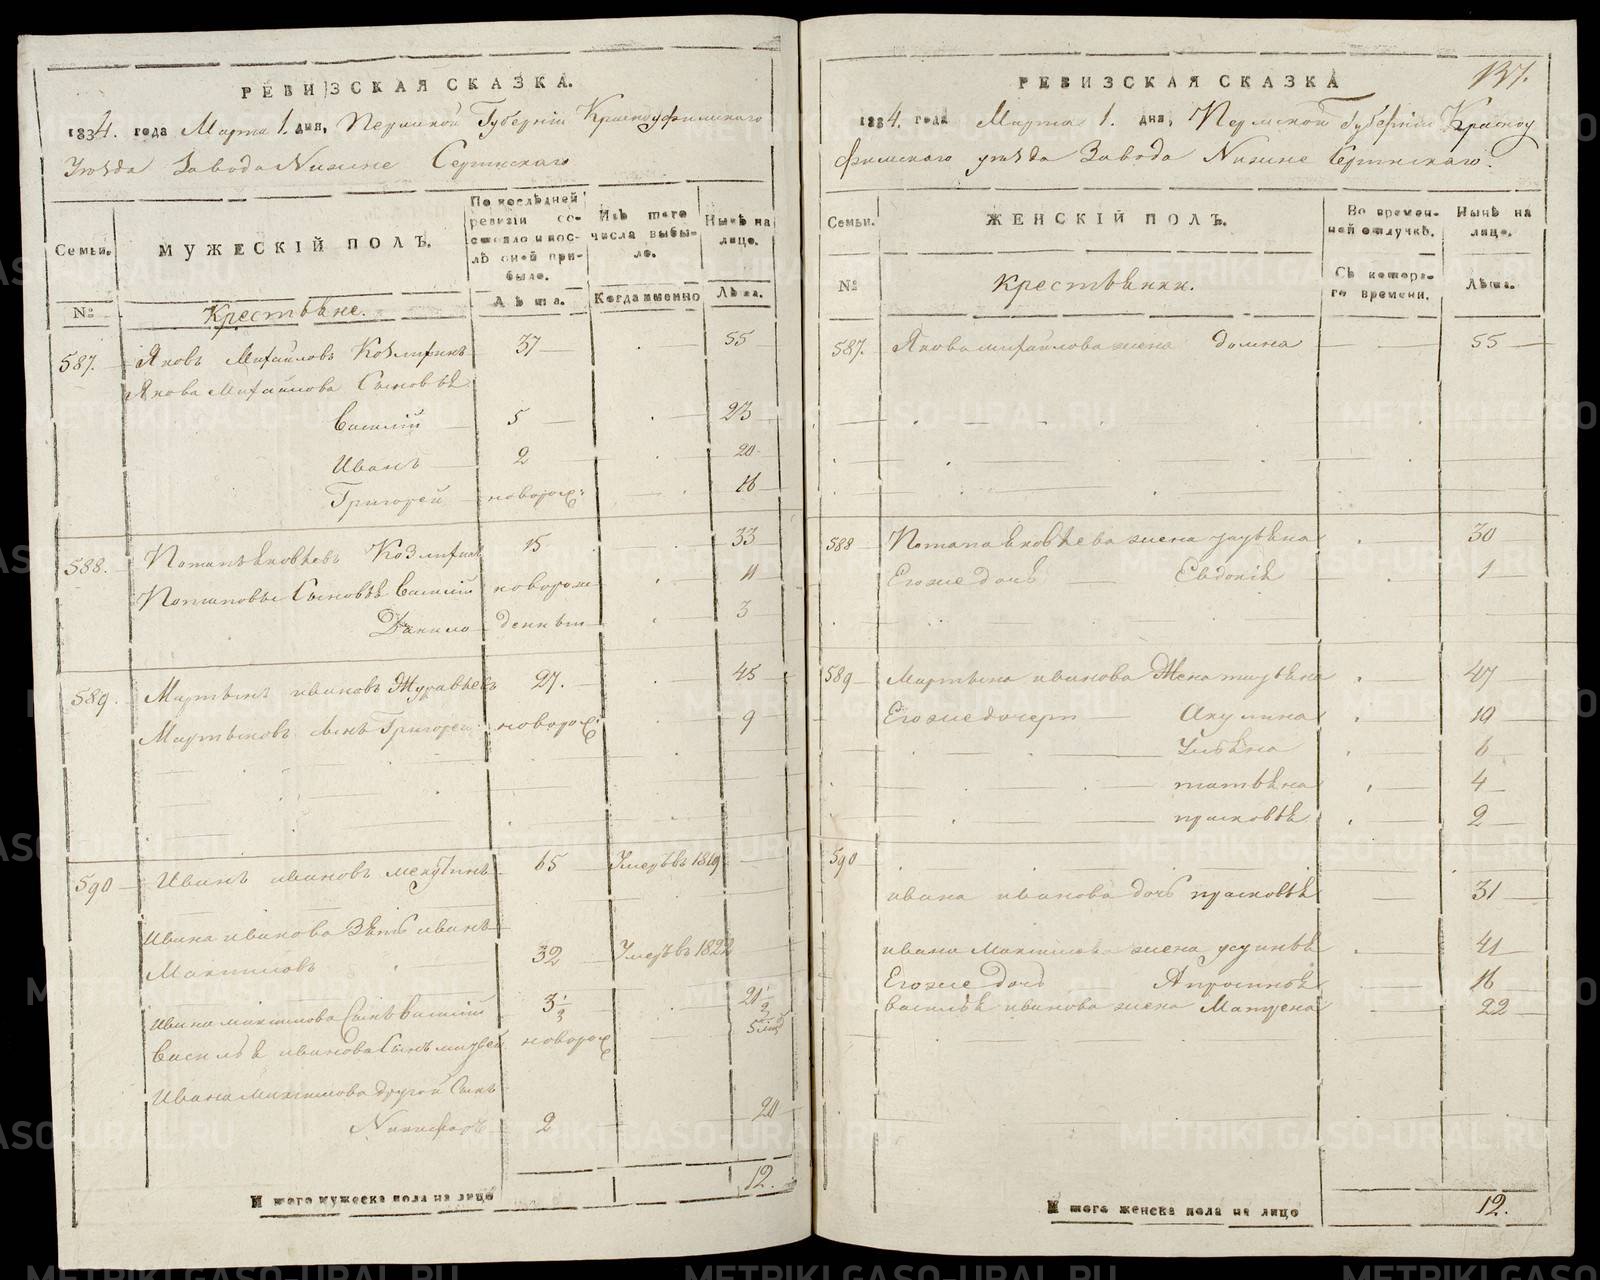 РЕВИЗСКАЯ СКАЗКА.
1834. года Марта 1. дня, Пермской Губерніи Красноуфимскаго
Уѣзда Завода Нижне Сергинскаго
Семьи.
МУЖЕСКІЙ ПОЛЪ.
По послѣдней ревизіи состояло и послѣ оной прибыло.
Изъ того числа выбыло.
Нынѣ на лицо.
№
Крестьяне.
Лѣта.
Когда именно
Лѣта.
587. Яковъ Михайловъ 37 55
Якова Михайлова Сыновья
Василій 5 23
Иванъ 2 20
Григорей новорож: 16
588. Потапъ Яковлевъ 15 33
Потаповы Сыновья Василій новорож 11
Данило денныи 3
589. Мартынъ Ивановъ Журавлевъ 27. 45
Мартыновъ сынъ Григорей новорож: 9
590 Иванъ Ивановъ 65 Умеръ въ 1819
Ивана Иванова Зять Иванъ
Максимовъ 32 Умеръ въ 1822
Ивана Максимова Сынъ Василій 3½ 21½
Василья Иванова Сынъ Матвей новорож 5 мѣс
Ивана Максимова другой Сынъ
Никифоръ 2 20
Итого мужеска пола на лицо 12.
137.
РЕВИЗСКАЯ СКАЗКА
1834. года Марта 1. дня, Пермской Губерніи Красноу
фимскаго уѣзда Завода Нижне Сергинскаго.
Семьи.
ЖЕНСКІЙ ПОЛЪ.
Во временной отлучкѣ.
Нынѣ на лицо.
№
Крестьянки.
Съ котораго времени.
Лѣта.
587. Якова Михайлова жена Домна 55
588 Потапа Яковлева жена Ульяна 30
Его же дочь Евдокія 1
589 Мартына Иванова Жена 47
Его же дочери Акулина 19
Ульяна 6
Татьяна 4
Прасковья 2
590
Ивана Иванова дочь Прасковья 31
Ивана Максимова жена Устинья 41
Его же дочь Апросинья 16
Василья Иванова жена Матрена 22
Итого женска пола на лицо 12.